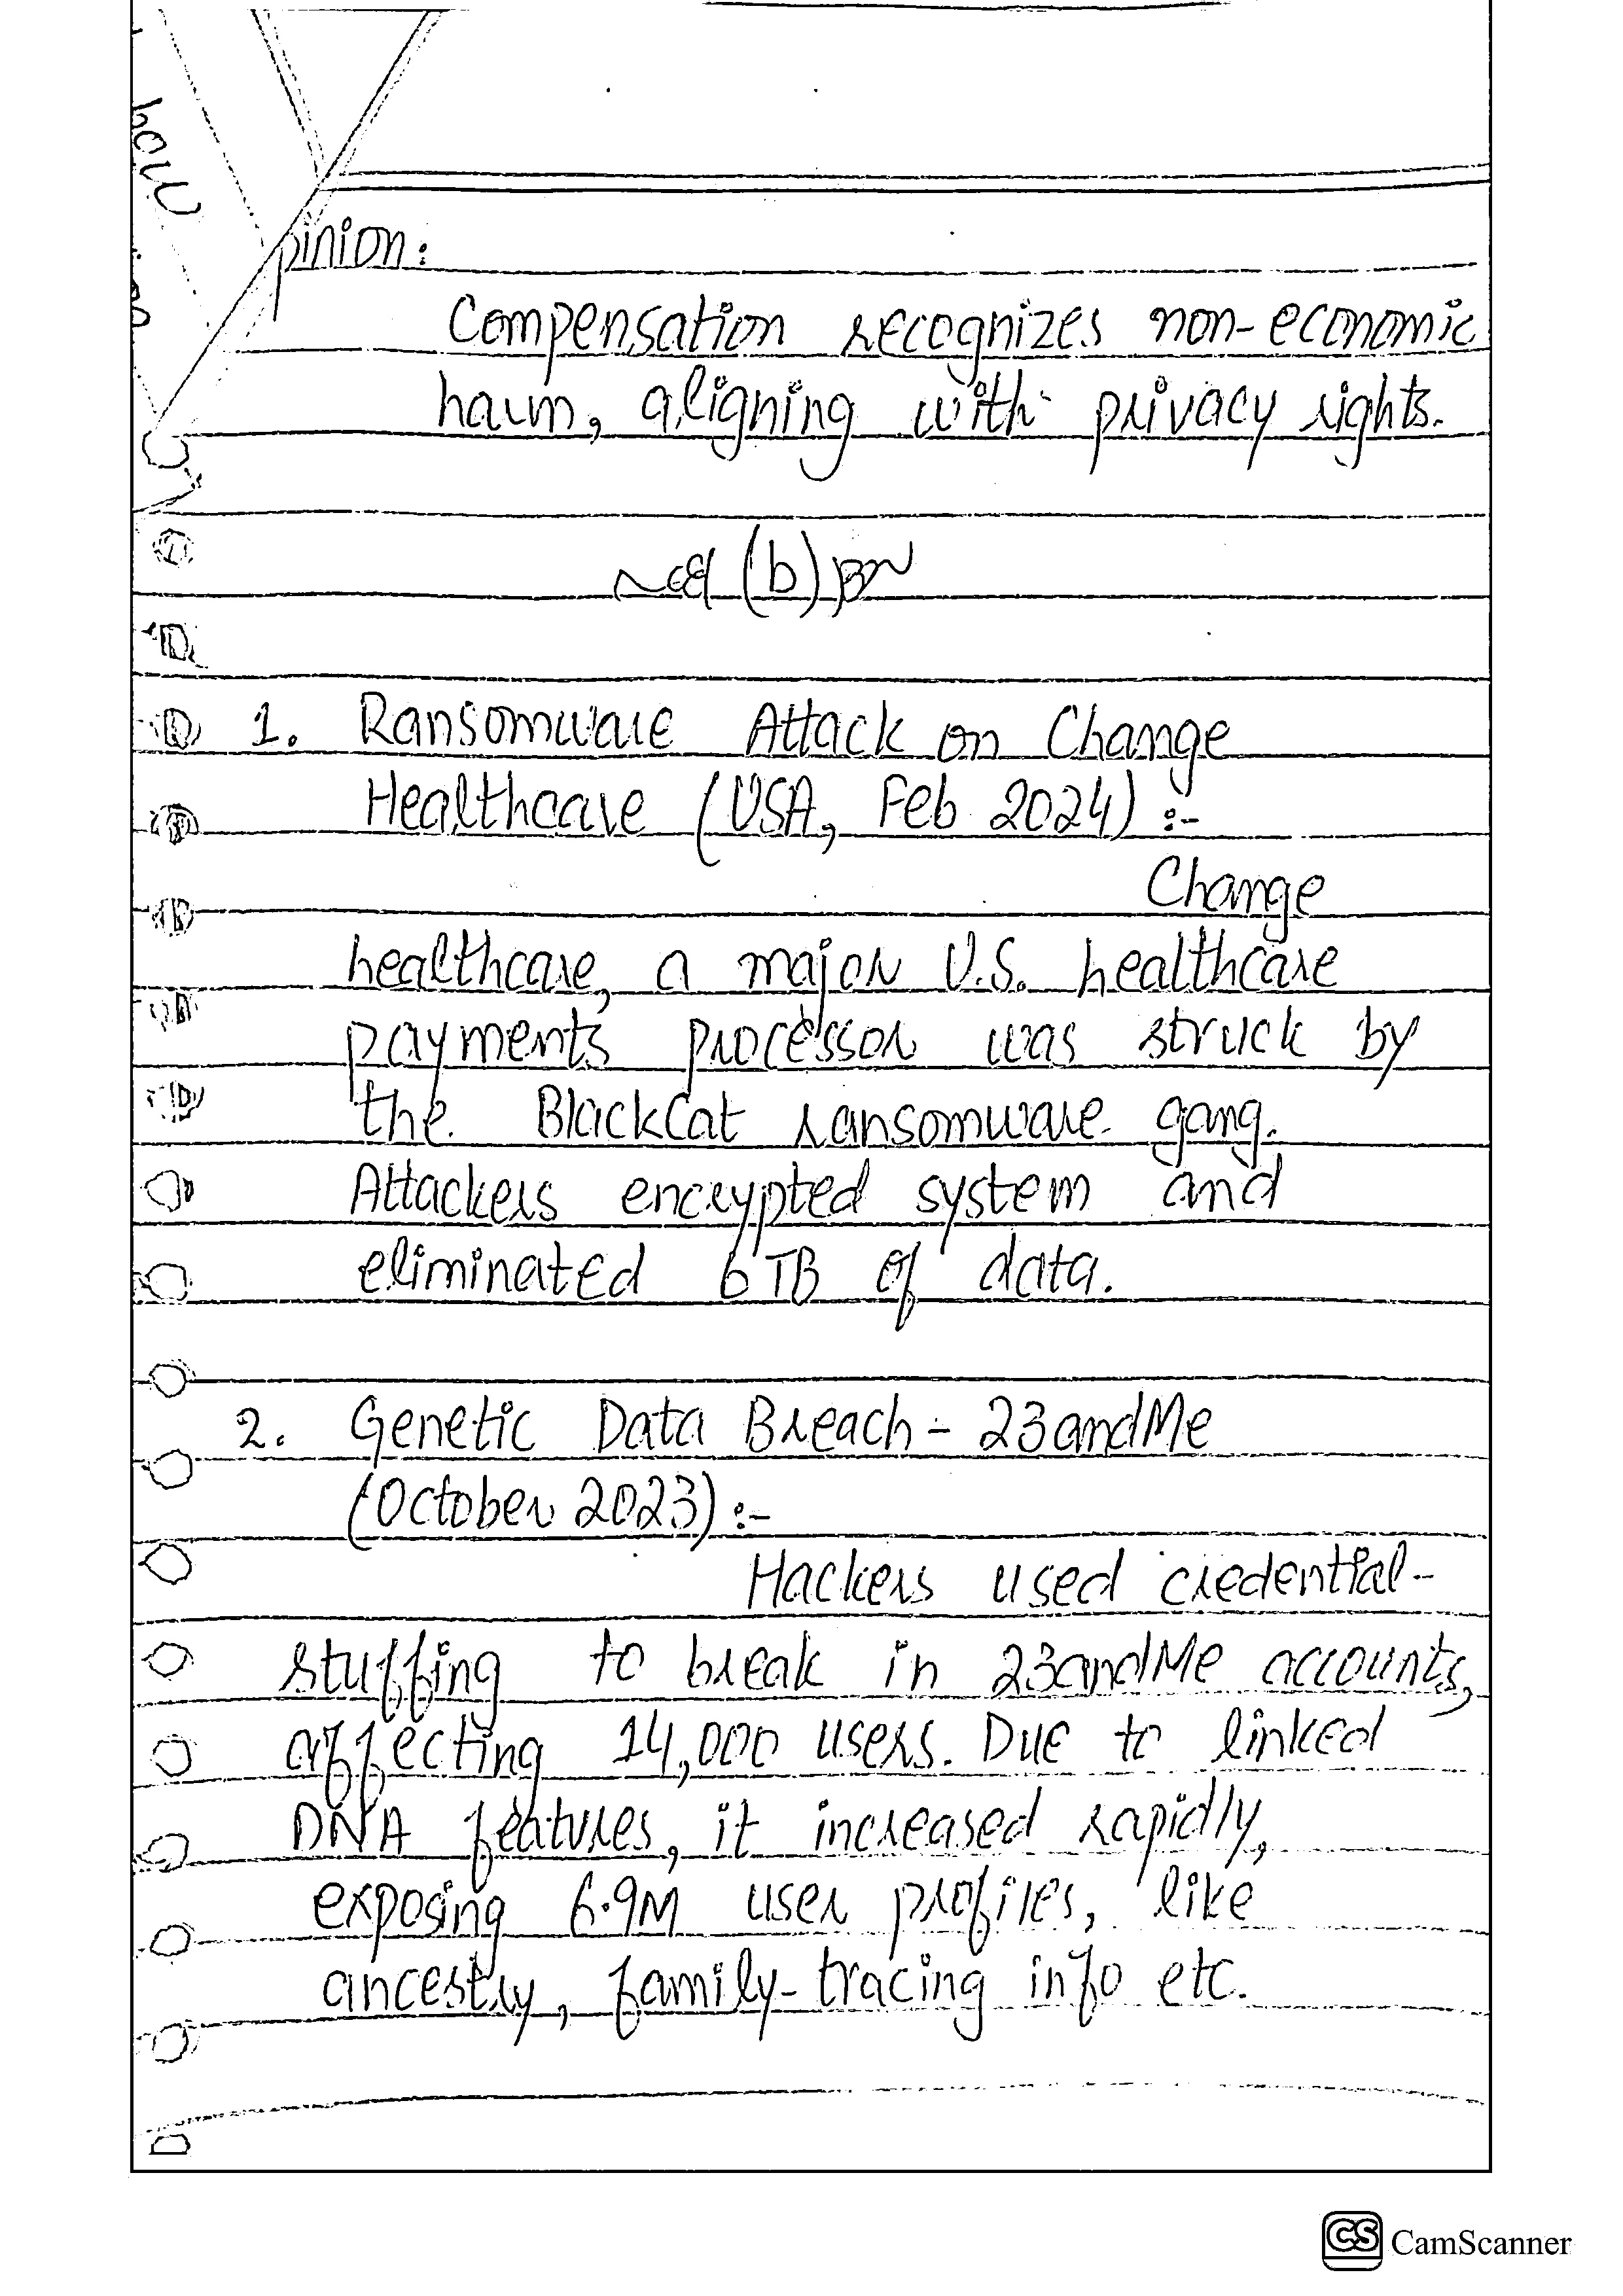 how
pinion:
Compensation recognizes non-economic
harm, aligning with privacy rights.
(b)
1. Ransomware Attack on Change
Healthcare (USA, Feb 2024) :-
Change
healthcare, a major U.S. healthcare
payments processor was struck by
the BlackCat ransomware gang.
Attackers encrypted system and
eliminated 6TB of data.
2. Genetic Data Breach - 23andMe
(October 2023) :-
Hackers used credential-
stuffing to break in 23andMe accounts,
affecting 14,000 users. Due to linked
DNA features, it increased rapidly,
exposing 6.9M user profiles, like
ancestry, family-tracing info etc.
CS CamScanner